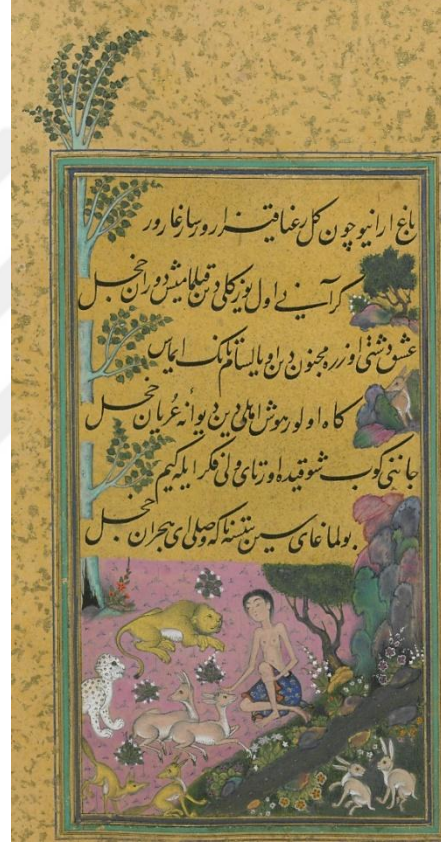 باغ ارا نیوچون کل رعنا قیزارور سارغارور
کر آنینک اول یوز کلی دین قیلمامیش دوران خجل
عشق دشتی اوزره مجنون دین اویالسام تانک ایماس
کاه اولور هوش اهلی دین دیوانهٔ عریان خجل
جاننی کوب شوقیده اورتای ولی فکر ایله کیم
بولماغای سین یتسه ناکه وصلی ای هجران خجل